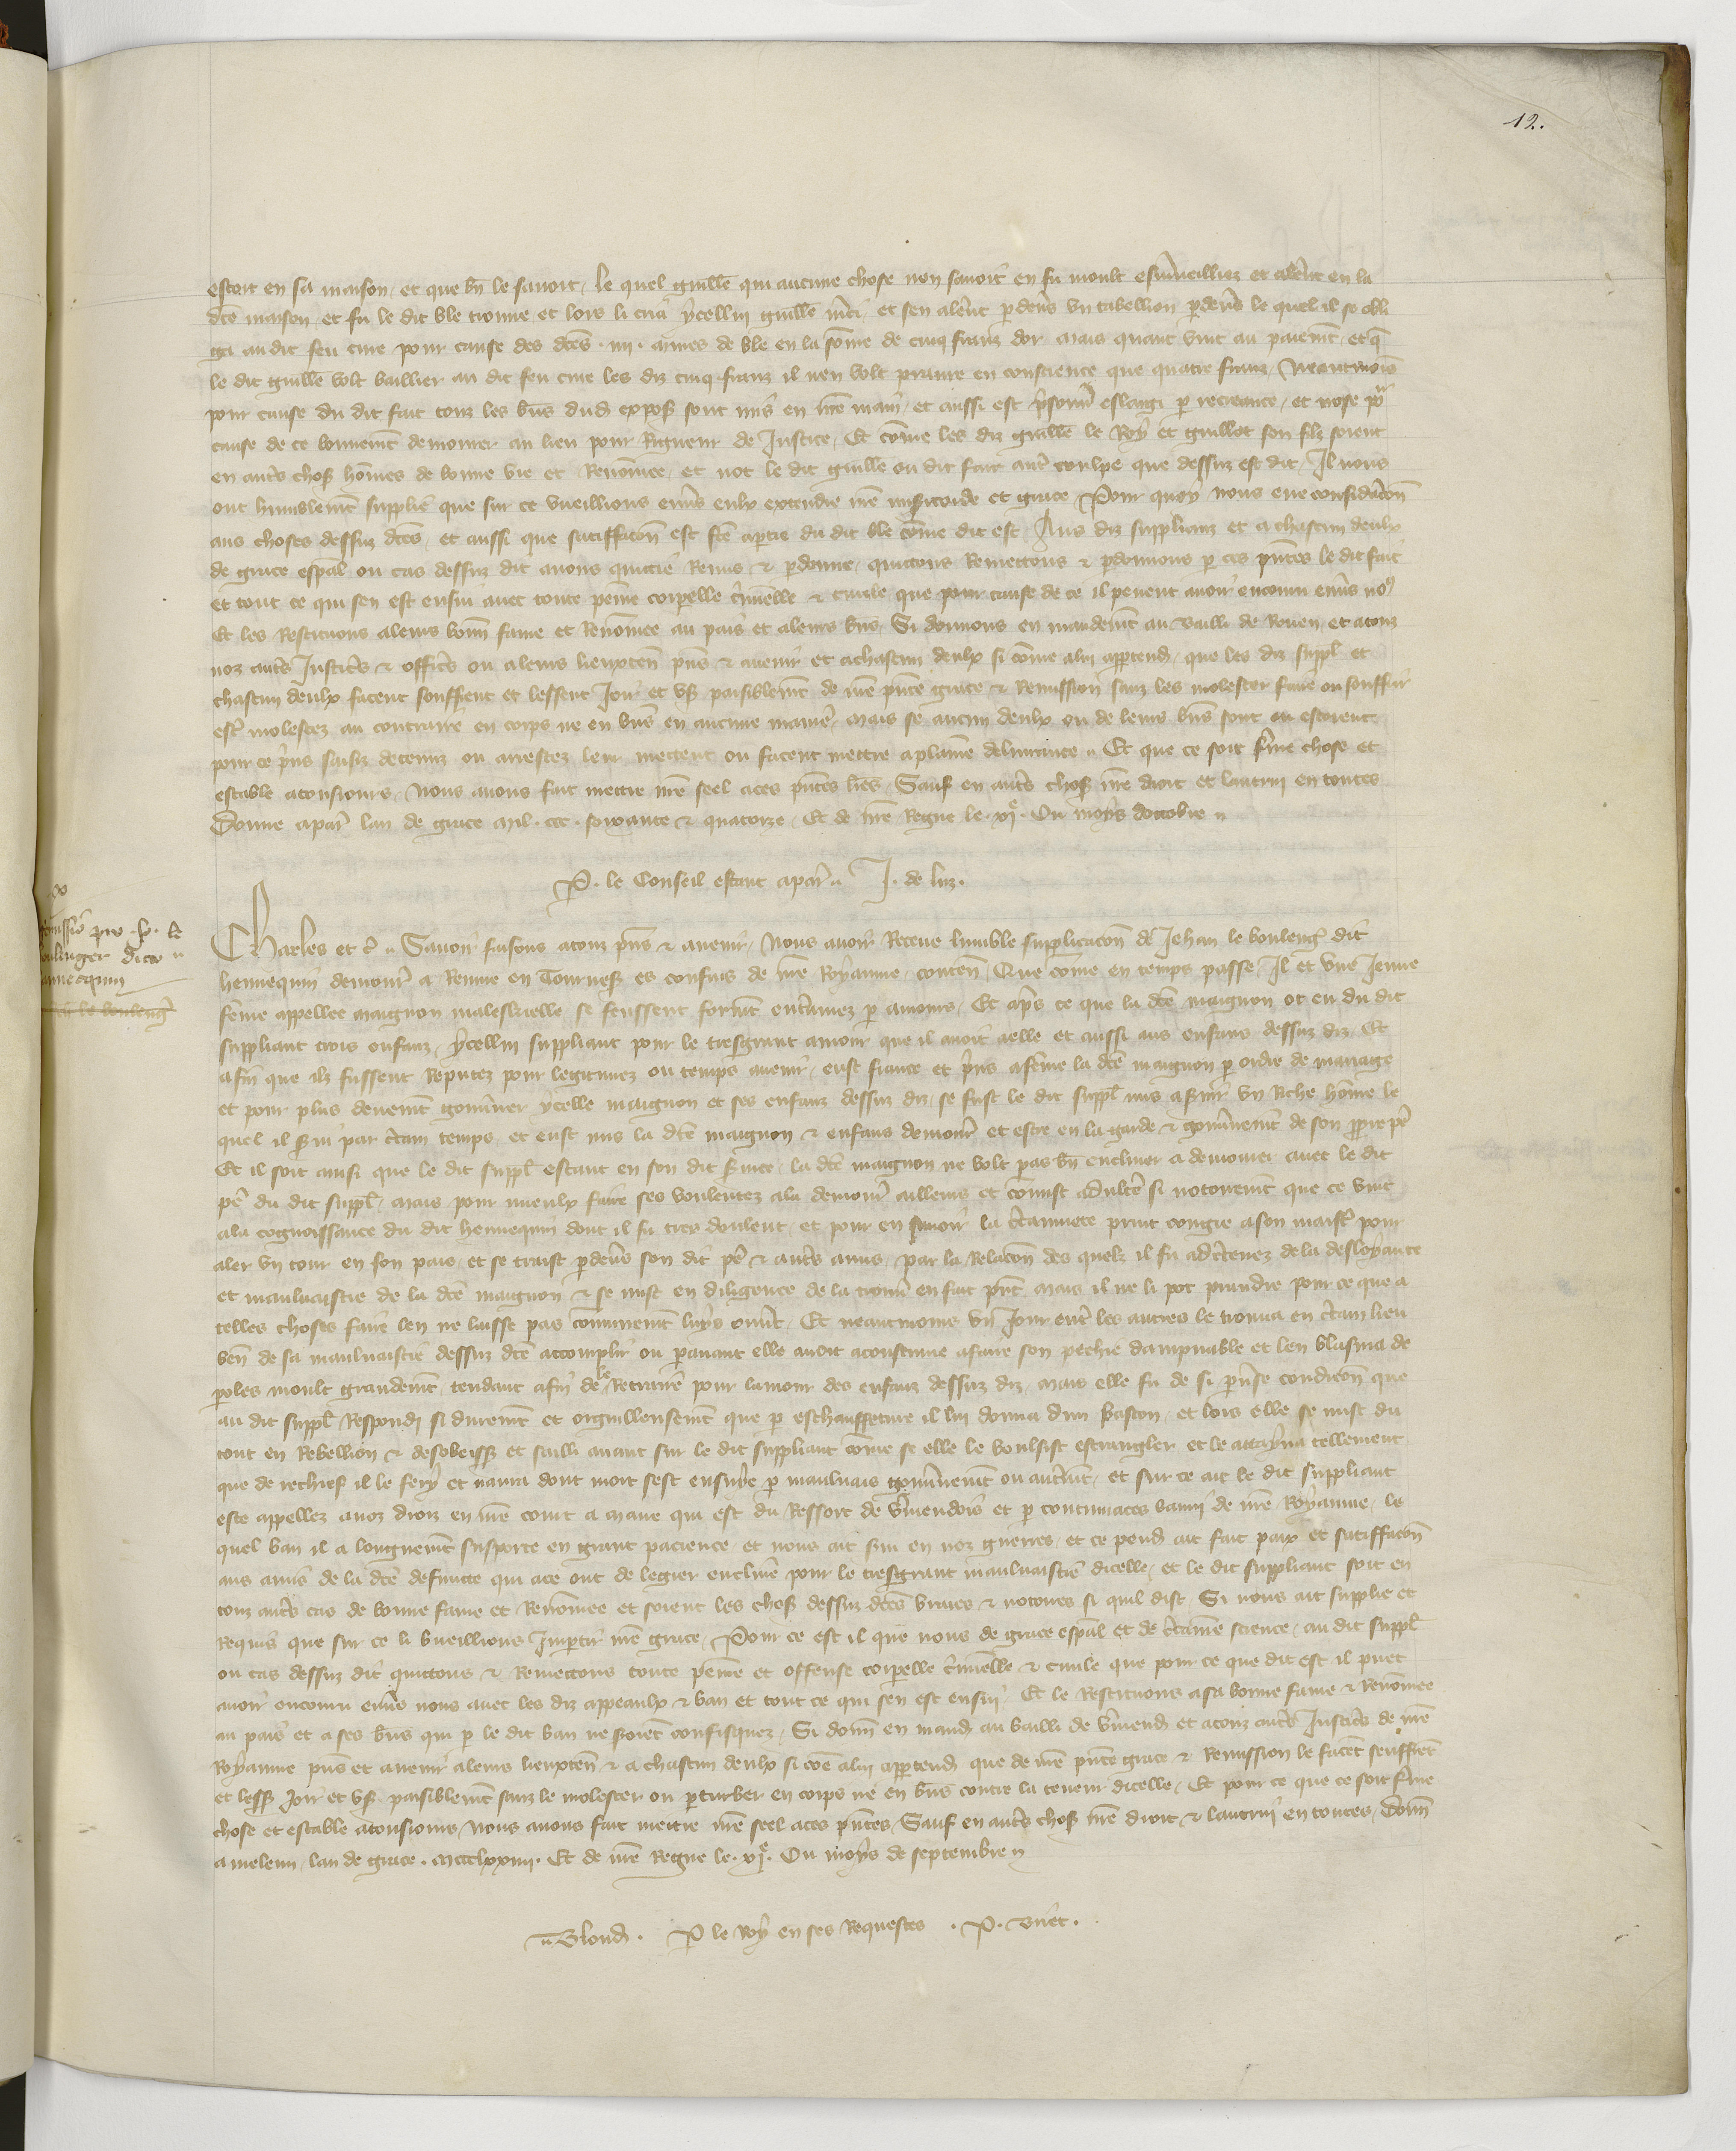 12.
estoit en sa maison et que bn le savoit, le quel guille qui aucune chose nen savoit en fu moult esmveilliez et alerēt en la
dcē maison et fu le dit ble trouve et lors li cria ycellui guille mci et sen alerēt p devs un tabellion p devs le quel il se obli
ga au dit feu cure pour cause des dcēs .iiii. mines de ble en la sōme de cinq frans dor mais quant vint au paiemt, et q̄
le dit guille volt baillier au dit feu cure les diz cinq franz il nen volt prāre en conscience que quatre franz, Neantmoīs
pour cause du dit fait touz les bn̄s dud expos sont mis en nrē main, et aussi est prisonn eslargi p recreance, et nose po
cause de ce bonnemt demourer au lieu pour rigueur de Justice, Et cōme les diz guille le Roy et guillot son filz soient
en auts chos hōmes de bonne vie et Renōmee, et not le dit guille ou dit fait aut coulpe que dessuz est dit, Il nous
ont humblemt supplie que sur ce vueillions envs eulx extendre nrē misicorde et grace Pour quoy nous eue consideracōn
aus choses dessuz dcēs, et aussi que satiffacōn est fcē aptie du dit ble cōme dit est, Aus diz supplianz et a chascun deulx
de grace espal ou cas dessuz dit avons quictie Remis & pdonne, quictons Remettons & pdonnons p ces pntes le dit fait
et tout ce qui sen est ensui avec toute peine corpelle criminelle & civile que pour cause de ce il peuent avoir encouru envs no9
Et les Restituons aleurs bonn fame et Renōmee au pais et aleurs bn̄s, Si donnons en mandemt au bailli de Rouen et atouz
noz auts Justicrs & officrs ou aleurs lieuxten pn̄s & avenir et achascun deulx si cōme alui apptendra, que les diz suppl et
chascun deulx facent souffrent et lessent Joir et us paisiblemt de nrē pnte grace & Remission sanz les molester faire ou souffrir
estre molestez au contraire en corps ne en bn̄s en aucune maniere, mais se aucun deulx ou de leurs bn̄s sont ou estoient
pour ce pris saisiz detenuz ou arrestez leur mettent ou facent mettre aplaine delivrance .. Et que ce soit ferme chose et
estable atousjours, Nous avons fait mettre nrē seel aces pntes lres, Sauf en auts chos nrē droit et lautrui en toutes
Donne apar lan de grace Mil. ccc. soixante & quatorze, Et de nrē Regne le .xie. Ou moys doctobre ..
P. le Conseil estant apar .. J. de luz.
missio pro Jo. le
oulenger dicto
annequin
le bouleng
Charles et c .. Savoir faisons atouz pn̄s & avenir, Nous avoir Receue lumble supplicacōn de Jehan le bouleng dit
hennequin demour a Renne en Tournes es confins de nrē Royaume, conten, Que come en temps passe Il et une Jeune
fēme appellee maignon malesbrielle se feussent formt entamez p amours, Et aps ce que la dcē maignon ot eu du dit
suppliant trois enfanz, ycellui suppliant pour le tresgrant amour que il avoit aelle et aussi aus enfans dessuz diz, Et
afin que ilz fussent Reputez pour legitimez ou temps avenir, eust fiance et pris afēme la dcē maignon p ordre de mariage
et pour plus devemt gouvner ycelle maignon et ses enfanz dessuz diz, se fust le dit suppl mis aservir un Riche hōme le
quel il servi par certain temps, et eust mis la dcē maignon & enfans demourer et estre en la garde & gouvnemt de son ppre pere
Et il soit ainsi que le dit suppl estant en son dit service, la dcē maignon ne volt pas bn encliner a demourer avec le dit
pere du dit suppl, mais pour mieulx faire ses voulentez ala demourer ailleurs et cōmist adultere si notoiremt que ce vint
ala cognoissance du dit hennequin dont il fu tres doulent, et pour en savoir la certainnete print congie ason maistre pour
aler un tour en son pais, et se traist p devs son dit pere & auts amis, par la Relacōn des quelz il fu acertenez de la desloyaute
et mauluaistie de la dcē maignon & se mist en diligence de la trouver en fait pnt mais il ne li pot prandre pour ce que a
telles choses faire len ne laisse pas cōmunemt luys ouvert, Et neantmoins un Jour entre les autres le trouva en certain lieu
ven de sa mauluaistie dessuz dcē accomplir ou pavant elle avoit acoustume afaire son pechie dampnable et len blasma de
poles moult grandemt tendant afin de le Retraire pour lamour des enfanz dessuz diz, mais elle fu de si pverse condicōn que
au dit suppl Respondi si duremt et orguilleusemt que p eschauffeture il lui donna dun baston, et lors elle se mist du
tout en Rebellion & desobeiss et sailli avant sur le dit suppliant cōme se elle le voulsist estrangler et le attayna tellement
que de rechief il le fery et navra dont mort sest ensuye p mauluais gouvnemt ou autremt, et sur ce ait le dit suppliant
este appellez anoz droiz en nrē court a Maire qui est du Ressort de Vermendois et p contumaces banni de nrē Royaume, le
quel ban il a longuemt supporte en grant pacience et nous ait servi en noz guerres, et ce pendant ait fait paix et satiffacōn
aus amis de la dcē defuncte qui ace ont de legier encline pour le tresgrant mauluaistie dicelle, et le dit suppliant soit en
touz auts cas de bonne fame et Renōmee et soient les chos dessuz dcēs vraies & notoires si quil dist, Si nous ait supplie et
Requis que sur ce li vueillions Impartir nrē grace, Pour ce est il que nous de grace espal et de certaine science, au dit suppl
ou cas dessuz dit quictons & Remettons toute peine et offense corpelle criminelle & civile que pour ce que dit est il puet
avoir encouru envs nous avec les diz appeaulx & ban et tout ce qui sen est ensui, Et le Restituons asa bonne fame & Renōmee
au pais et a ses bn̄s qui p le dit ban ne seroiet confisquez, Si donn en mand au bailli de Vermend et atouz auts Justicrs de nrē
Royaume pn̄s et avenir aleurs lieuxten & a chascun deulx si cōe alui apptendra que de nrē pnte grace & Remission le facēt seuffrēt
et less Joir et us paisiblemt sanz le molester ou pturber en corps ne en bn̄s contre la teneur dicelle, Et pour ce que ce soit ferme
chose et estable atousjours, Nous avons fait mettre nrē seel aces pntes, Sauf en auts chos nrē droit & lautrui en toutes, donn
a meleun, lan de grace .Mccclxxiiii. Et de nrē Regne le .xie. Ou moys de septembre ..
.. Blond. P le Roy en ses Requestes . P. Briet.